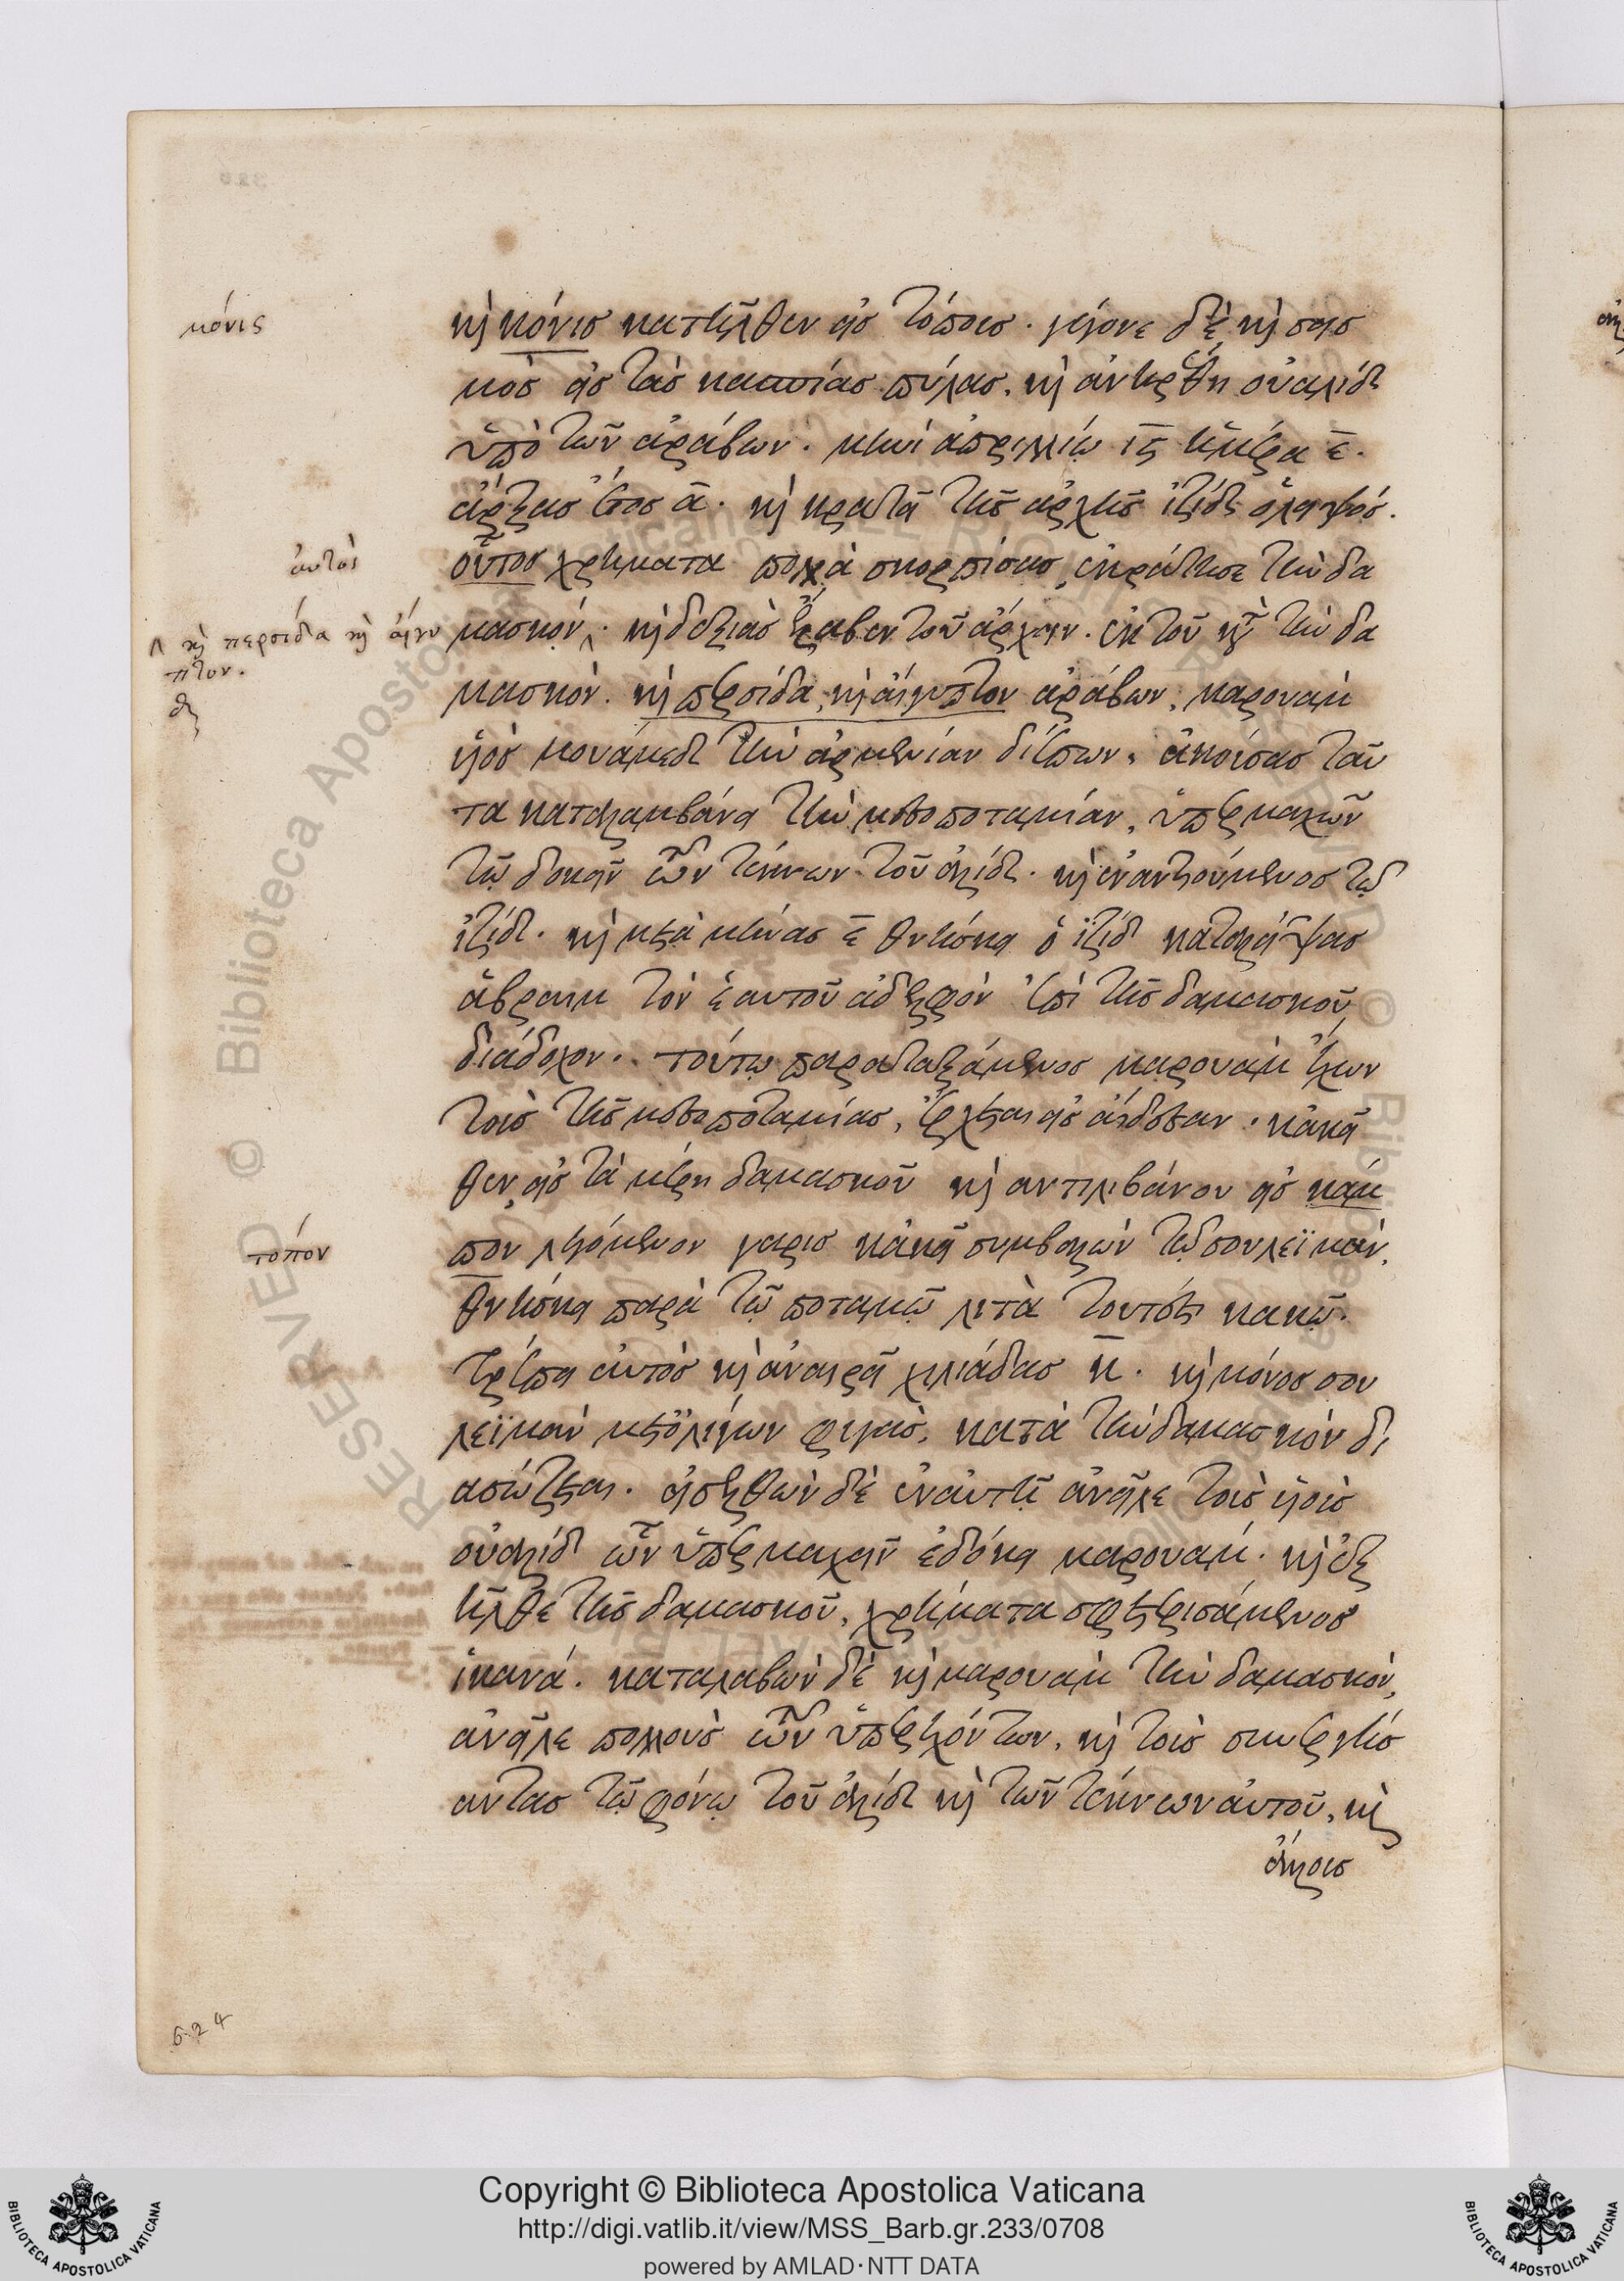 κόνις
καὶ κόνις κατῆλθεν εἰς τόποις. γέγονε δὲ καὶ σεισ
μὸς εἰς τὰς κασπίας πύλας. καὶ ἀνῃρέθη οὐαλίδ
ὑπὸ τῶν ἀράβων. μηνὶ ἀπριλλίῳ ις ἡμέρα ε.
ἄρξας ἔτος α. καὶ κρατεῖ τῆς ἀρχῆς ἰζίδ ὁ λειψός.
αὐτὸς
οὗτος χρήματα πολλὰ σκορπίσας, ἐκράτησε τὴν δα
καὶ περσίδα καὶ αἴγυ
πτον.
μασκόν. καὶ δεξιὰς ἔλαβεν τοῦ ἄρχειν. ἐκ τοῦ κατὰ τὴν δα
μασκὸν. καὶ περσίδα, καὶ αἴγυπτον ἀράβων. μαρουὰμ
υἱὸς μουάμεδ τὴν ἀρμενίαν διέπων. ἀκούσας ταῦ
τα καταλαμβάνει τὴν μεσοποταμίαν, ὑπερμαχῶν
τῷ δοκεῖν τῶν τέκνων τοῦ οὐαλίδ. καὶ ἐναντιούμενος τῷ
ἰζίδ. καὶ μετὰ μῆνας ε θνήσκει ὁ ἰζίδ καταλείψας
ἄβραιμ τὸν ἑαυτοῦ ἀδελφὸν ἐπὶ τῆς δαμασκοῦ
διάδοχον. τούτῳ παραταξάμενος μαρουὰμ ἔχων
τοὺς τῆς μεσοποταμίας, ἔρχεται εἰς αἴδεσαν. κἀκεῖ
θεν εἰς τὰ μέρη δαμασκοῦ καὶ αντιλιβάνου εἰς κάμ
τοπον
πον λεγόμενον γαρις κἀκεῖ συμβαλὼν τῷ σουλεϊμὰν.
θνήσκει παρὰ τῷ ποταμῷ λιτὰ τουτέστι κακῷ.
τρέπει αὐτὸς καὶ ἀναιρεῖ χιλιάδας κ. καὶ μόνος σου
λεϊμὰν μετ' ὀλίγων φυγὰς. κατὰ τὴν δαμασκὸν δι
ασώζεται. εἰσελθὼν δὲ ἐν αὐτῇ ἀνεῖλε τοὺς υἱοὺς
οὐαλίδ ὧν ὑπερμαχεῖν ἐδόκει μαρουὰμ. καὶ ἐξ
ῆλθε τῆς δαμασκοῦ, χρήματα σφετερισάμενος
ἱκανά. καταλαβὼν δὲ καὶ μαρουὰμ τὴν δαμασκὸν,
ἀνεῖλε πολλοὺς τῶν ὑπερεχόντων, καὶ τοὺς συνεργήσ
αντας τῷ φόνῳ τοῦ οὐαλίδ καὶ τῶν τέκνων αὐτοῦ, καὶ
624
Copyright © Biblioteca Apostolica Vaticana
http://digi.vatlib.it/view/MSS_Barb.gr.233/0708
powered by AMLAD·NTT DATA
BIBLIOTECA APOSTOLICA VATICANA
BIBLIOTECA APOSTOLICA VATICANA